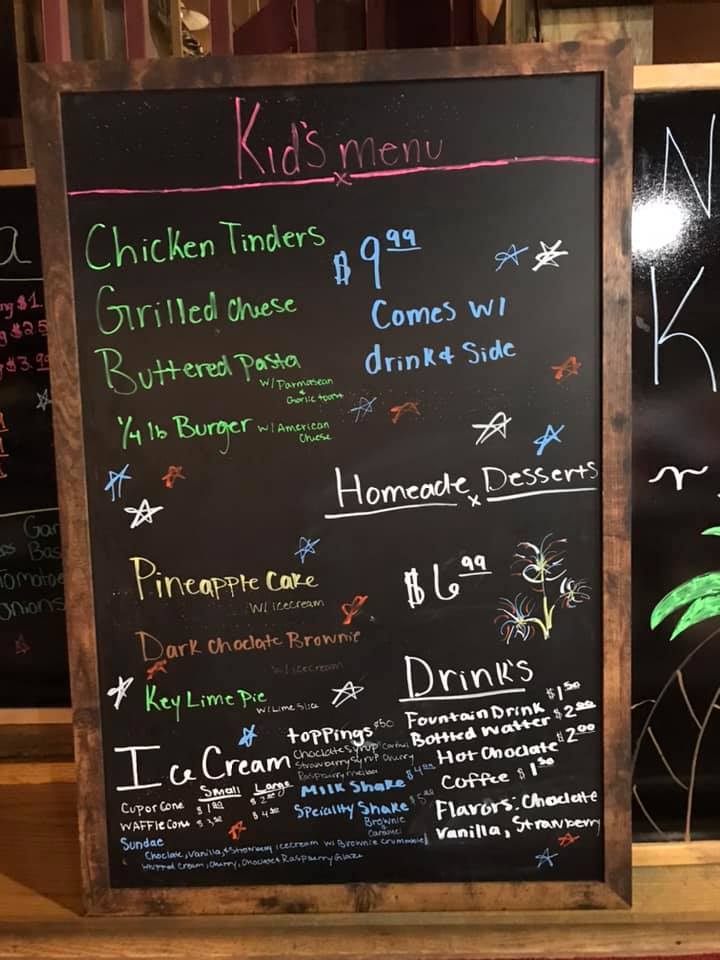 Kid's menu
Chicken Tinders
$9.99
Grilled cheese
Comes w/
Buttered Pasta
drink & Side
w/ Parmasean
&
Garlic toast
1/4 lb Burger w/ American
cheese
Homeade Desserts
Pineapple Cake
w/ icecream
$6.99
Dark Choclate Brownie
w/ icecream
Key Lime Pie
w/ Lime Slice
Drink's
Fountain Drink $1.50
Bottled Watter $2.00
Hot Choclate $2.00
Coffee $1.50
Flavors: Choclate
Vanilla, Strawberry
Ice Cream
toppings $.50
Choclate Syrup Caramel
Strawberry Syrup Churry
Small Large
Cup or Cone
Waffle Cone
Milk Shake
Speciality Shake
Brownie
Caramel
Sundae
Choclate, Vanilla, & Strawberry icecream w/ Brownie Crummbles
Whipped Cream, Churry, Choclate & Raspberry Glaze
a
$1.
$2.5
$3.99
Gar
Bas
Tomatoe
Onions
N
K